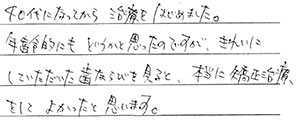 40代になってから 治療をはじめました。
年齢的にも どうかと思ったのですが、きれいに
していただいた歯ならびを見ると、本当に矯正治療
をして よかったと思います。